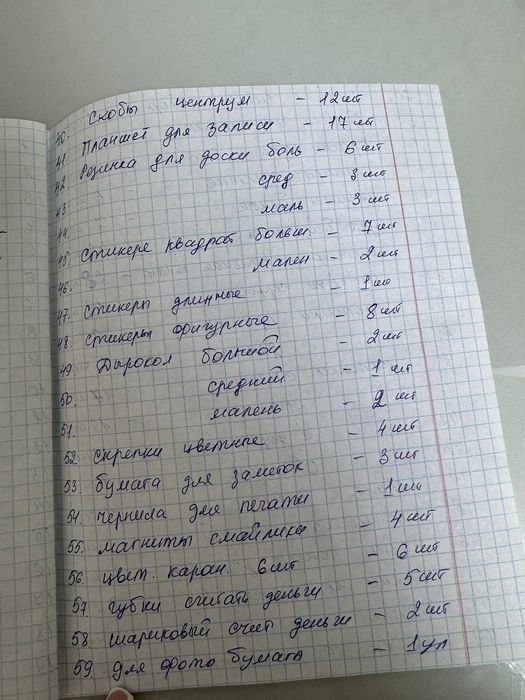 40. Скобы центрум - 12 шт
41. Планшет для записи - 17 шт
42. Резинка для доски боль - 6 шт
43. сред - 3 шт
44. маль - 3 шт
45. Стикере квадрат больш. - 7 шт
46. мален - 2 шт
47. Стикеры длинные - 1 шт
48. Стикеры фигурные - 8 шт
49. Дырокол большой - 2 шт
50. средний - 1 шт
51. малень - 2 шт
52. скрепки цветные - 4 шт
53. бумага для заметок - 3 шт
54. чернила для печати - 1 шт
55. магниты смайлики - 4 шт
56. цвет. каран. 6 шт - 6 шт
57. губки считать деньги - 5 шт
58. шариковый счит деньги - 2 шт
59. для фото бумага - 1 уп